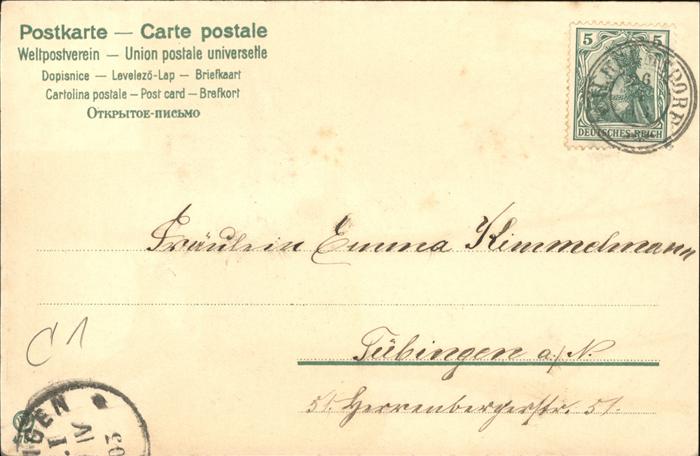 Postkarte — Carte postale
Weltpostverein — Union postale universelle
Dopisnice — Levelező-Lap — Briefkaart
Cartolina postale — Post card — Brefkort
Открытое-письмо
5 5
DEUTSCHES REICH
Fräulein Emma Kimmelmann
Tübingen a/N.
51. Herrenbergerstr. 51.
C 1